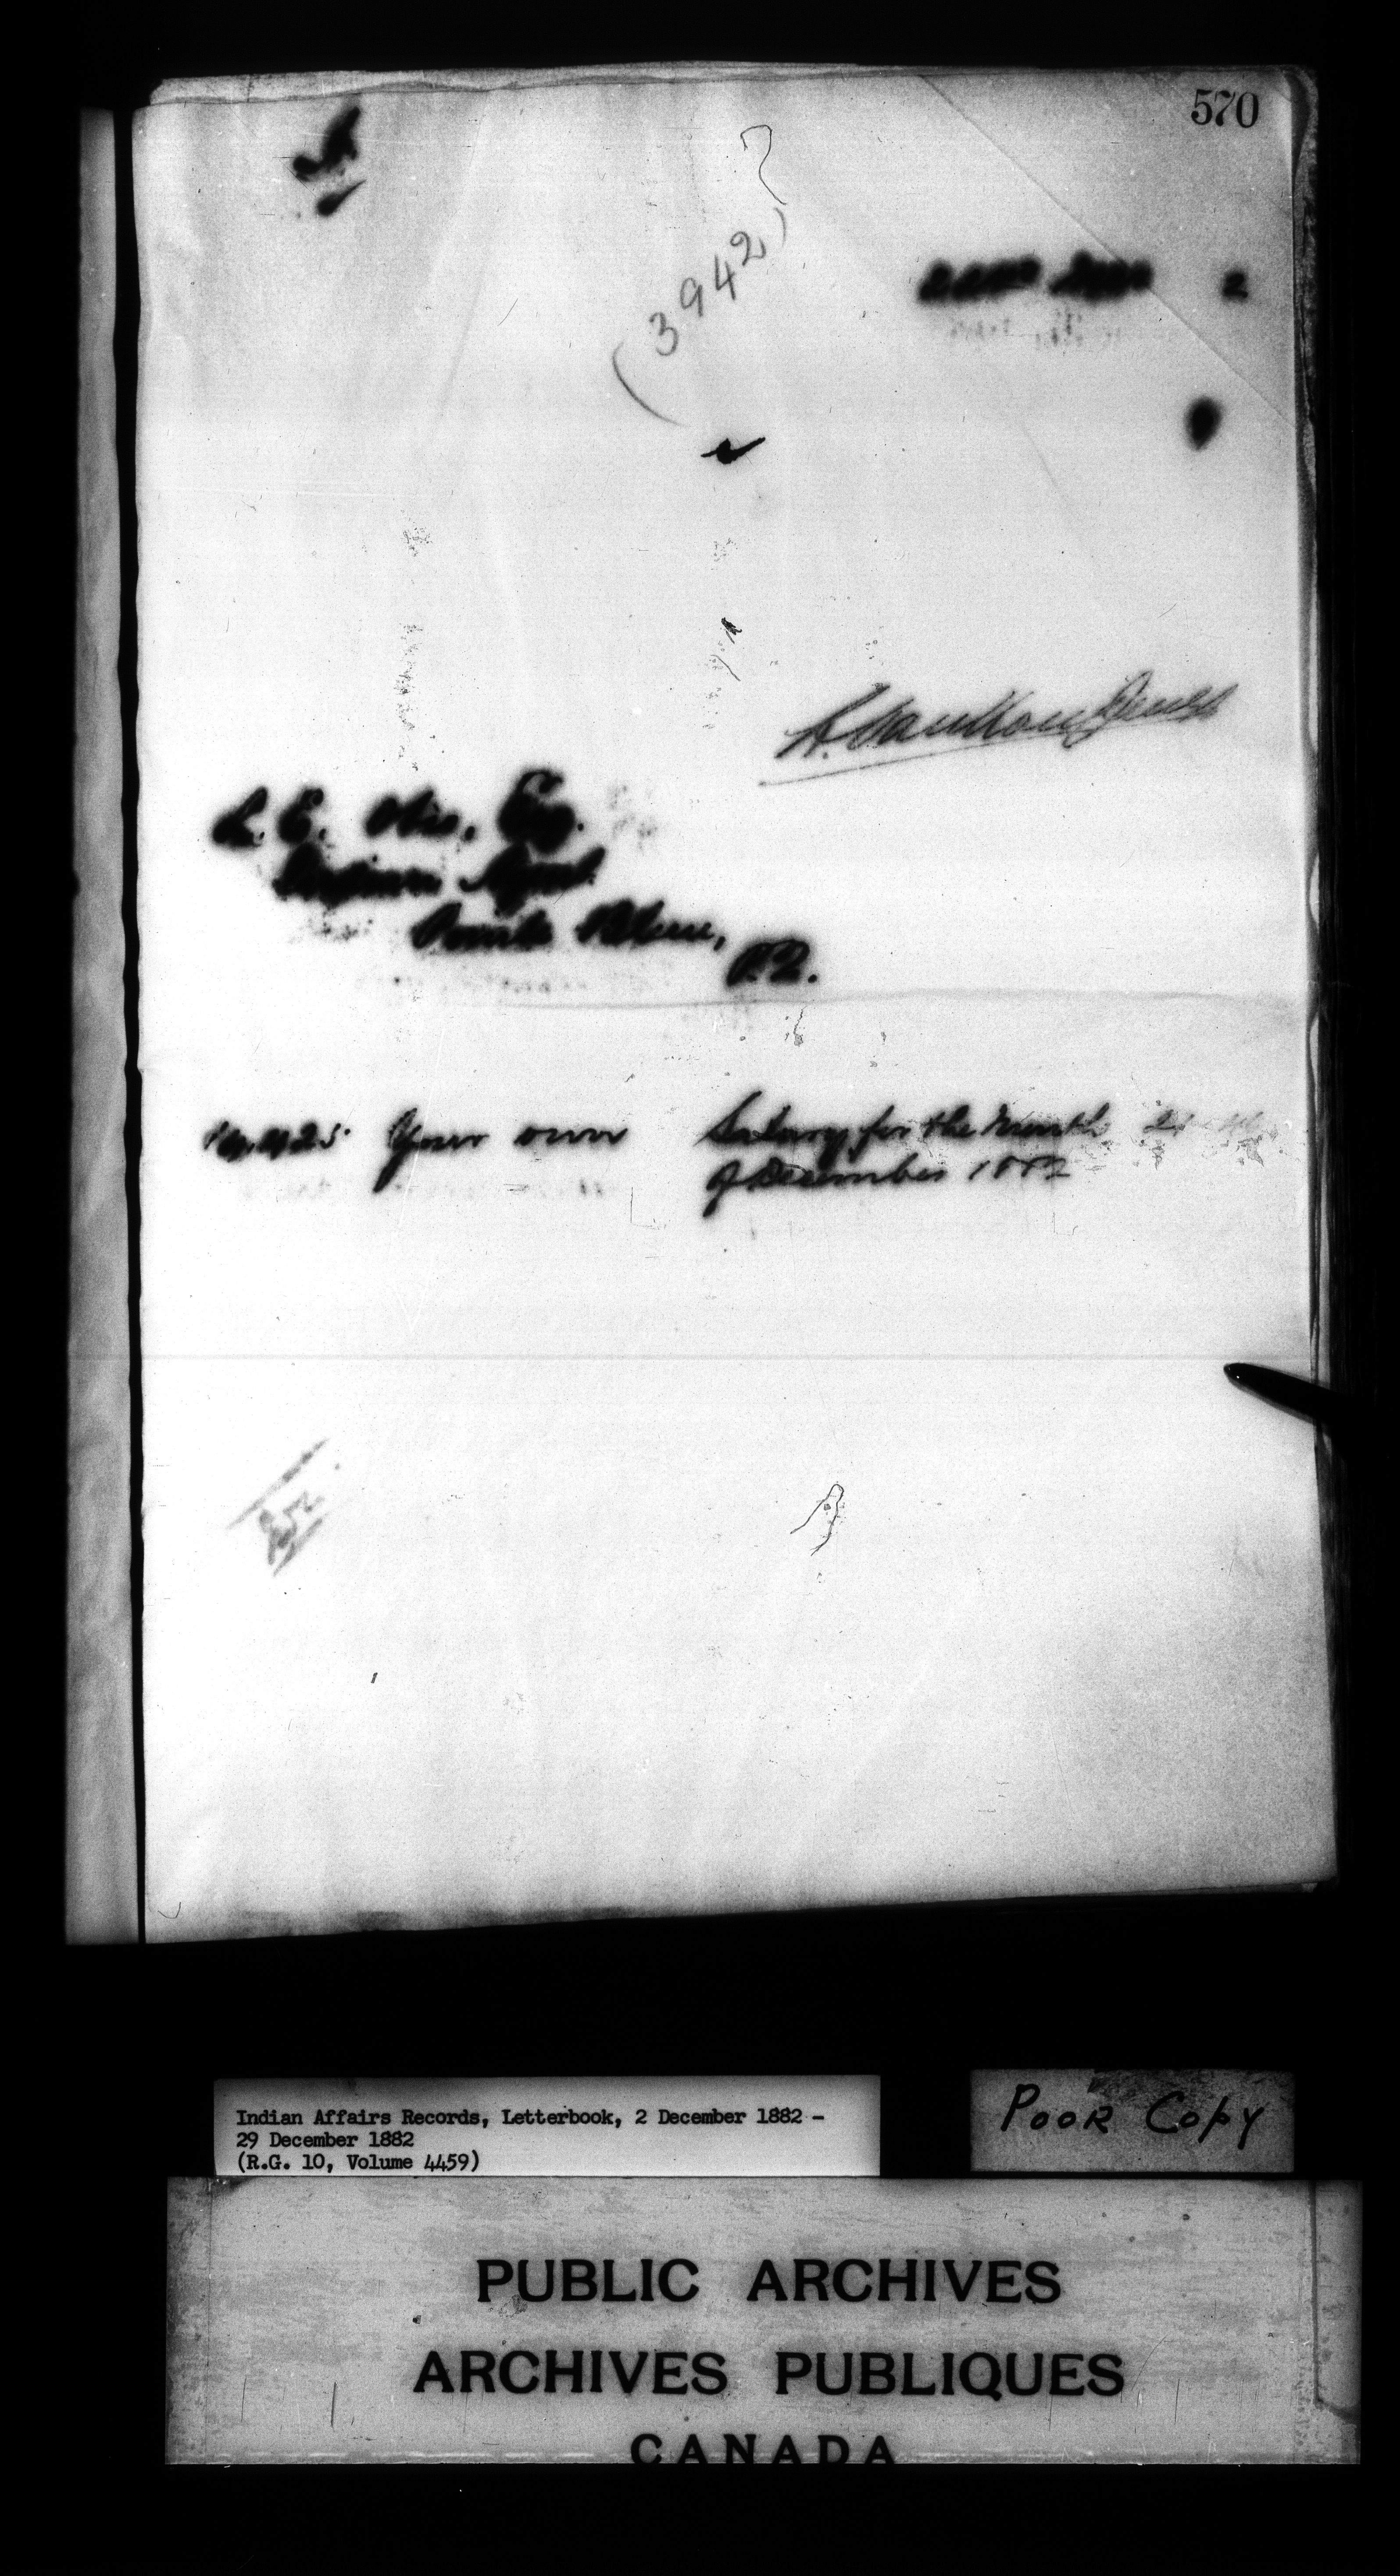 570
(3942)
2
L. E. Otis, Esq.
Indian Agent
Pointe Bleue,
P.Q.
Your own Salary for the Month
of December 1882
Indian Affairs Records, Letterbook, 2 December 1882 -
29 December 1882
(R.G. 10, Volume 4459)
POOR COPY
PUBLIC ARCHIVES
ARCHIVES PUBLIQUES
CANADA